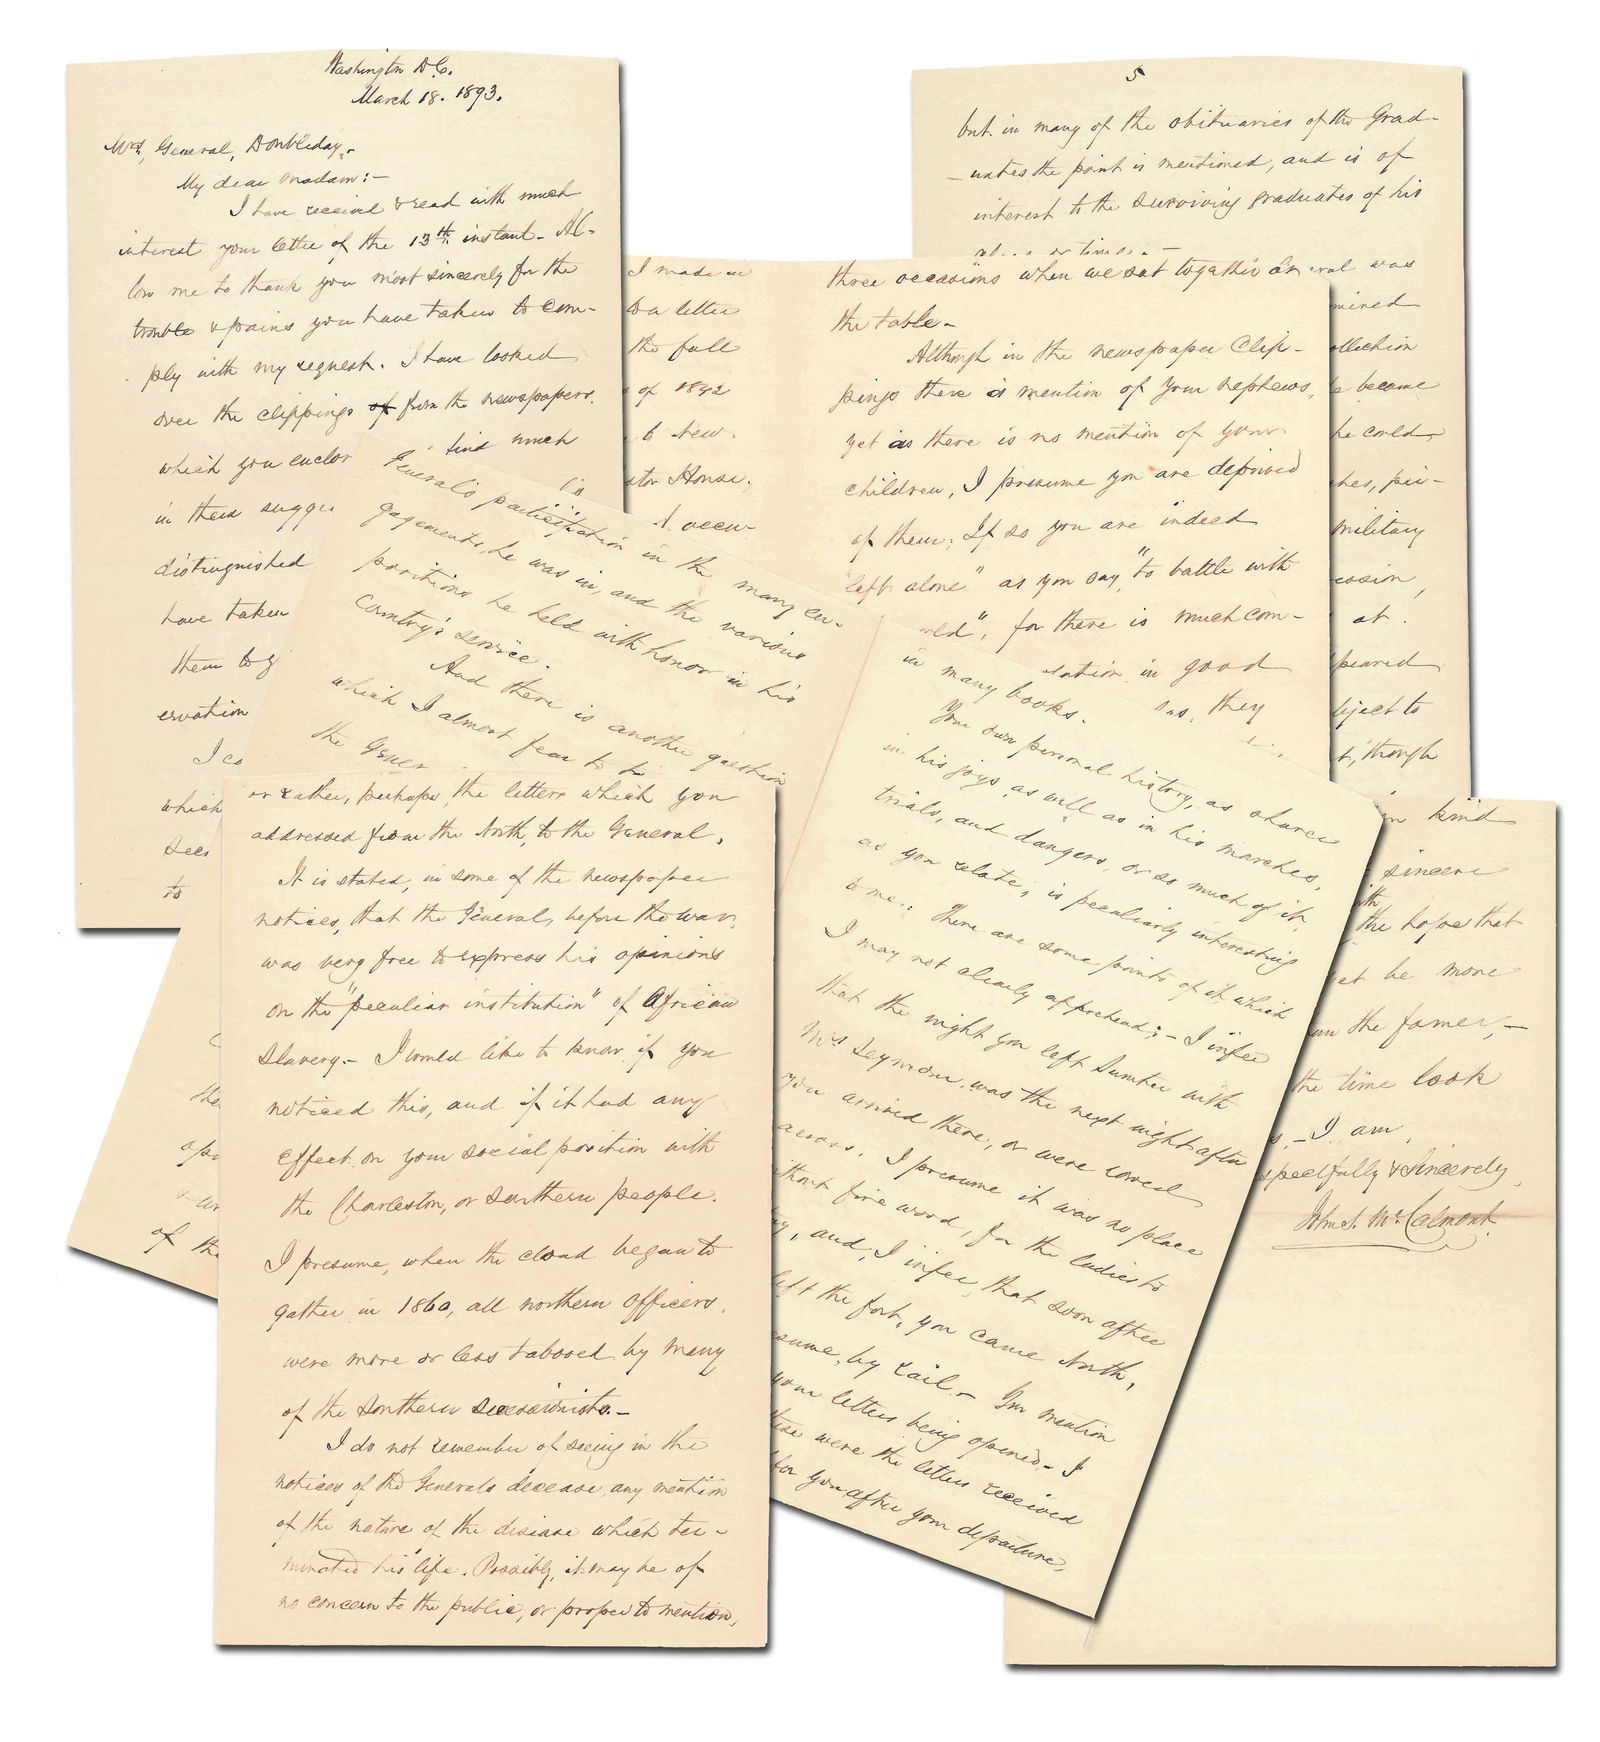 Washington D.C.
March 18. 1893.
Mrs, General, Doubleday,-
My dear madam:-
I have received & read with much
interest your letter of the 13th. instant- Al-
low me to thank you most sincerely for the
trouble & pains you have taken to com-
ply with my request. I have looked
over the clippings of from the newspapers.
which you enclos
find much
in them sugge
distinguished
have taken
them to g
ervation
I co
which
to
General's participation in the many en-
gagements, he was in, and the various
positions he held with honor in his
Country's service.
And there is another question
which I almost fear to
the Gener
or rather, perhaps, the letters which you
addressed from the North, to the General,
It is stated, in some of the newspaper
notices, that the General, before the war,
was very free to express his opinions
on the "peculiar institution" of African
Slavery.- I would like to know if you
noticed this, and if it had any
effect on your social position with
the Charleston, or Southern people.
I presume, when the cloud began to
gather in 1860, all northern officers,
were more or less tabooed by many
of the Southern secessionists.-
I do not remember of seeing in the
notices of the Generals decease, any mention
of the nature of the disease which ter-
minated his life. Possibly, it may be of
no concern to the public, or proper to mention,
of the
I made in
to a letter
the fall
of 1842
to New
stor House.
occu-
5
but in many of the obituaries of the Grad-
-uates the point is mentioned, and is of
interest to the surviving graduates of his
three occasions when we sat together at
the table-
Although in the newspaper Clip-
pings there is mention of your nephews,
yet as there is no mention of your
children, I presume you are deprived
of them; If so you are indeed
left alone" as you say, "to battle with
rld", for there is much com-
lation in good
they
ral was
mined
ollection
he became
he could,
ches, pic-
military
casion,
at
peared
bject to
t, though
in many books.
Your own personal history, as sharer
in his joys as well as in his marches,
trials, and dangers, or so much of it,
as you relate, is peculiarly interesting
to me. There are some points of it, which
I may not clearly apprehend:- I infer
that the night you left Sumter with
Mrs Seymour, was the next night after
you arrived there, or were rowed
across. I presume it was no place
ithout fire wood, for the ladies to
and, I infer, that soon after
left the fort, you came North,
sume, by rail.- You mention
your letters being opened.- I
these were the letters received
for you after your departure,
in kind
sincere
the hope that
yet be more
an the former,-
the time look
s.- I am,
spectfully & Sincerely,
John S. McCalmont.